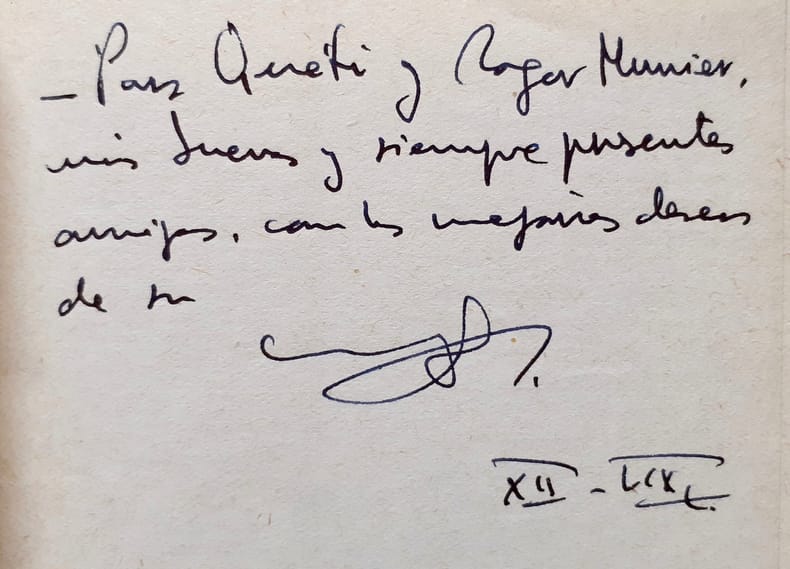 – Para Quéti y Roger Munier,
mis buenos y siempre presentes
amigos, con los mejores deseos
de su
XII – LIX.